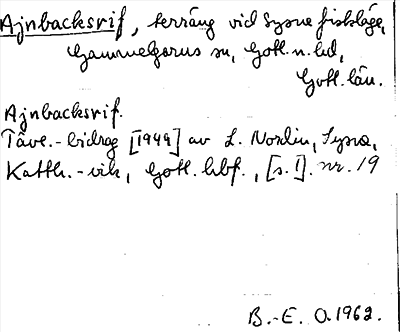 Ajnbacksrif, terräng vid Sysne fiskläge,
Gammelgarns sn, Gotl. n. hd,
Gotl. län.
Ajnbacksrif.
Tävl.-bidrag [1949] av L. Nordin, Sysne,
Katth.-vik, Gotl. hbf., [s. 1]. nr. 19
B.-E. O. 1962.